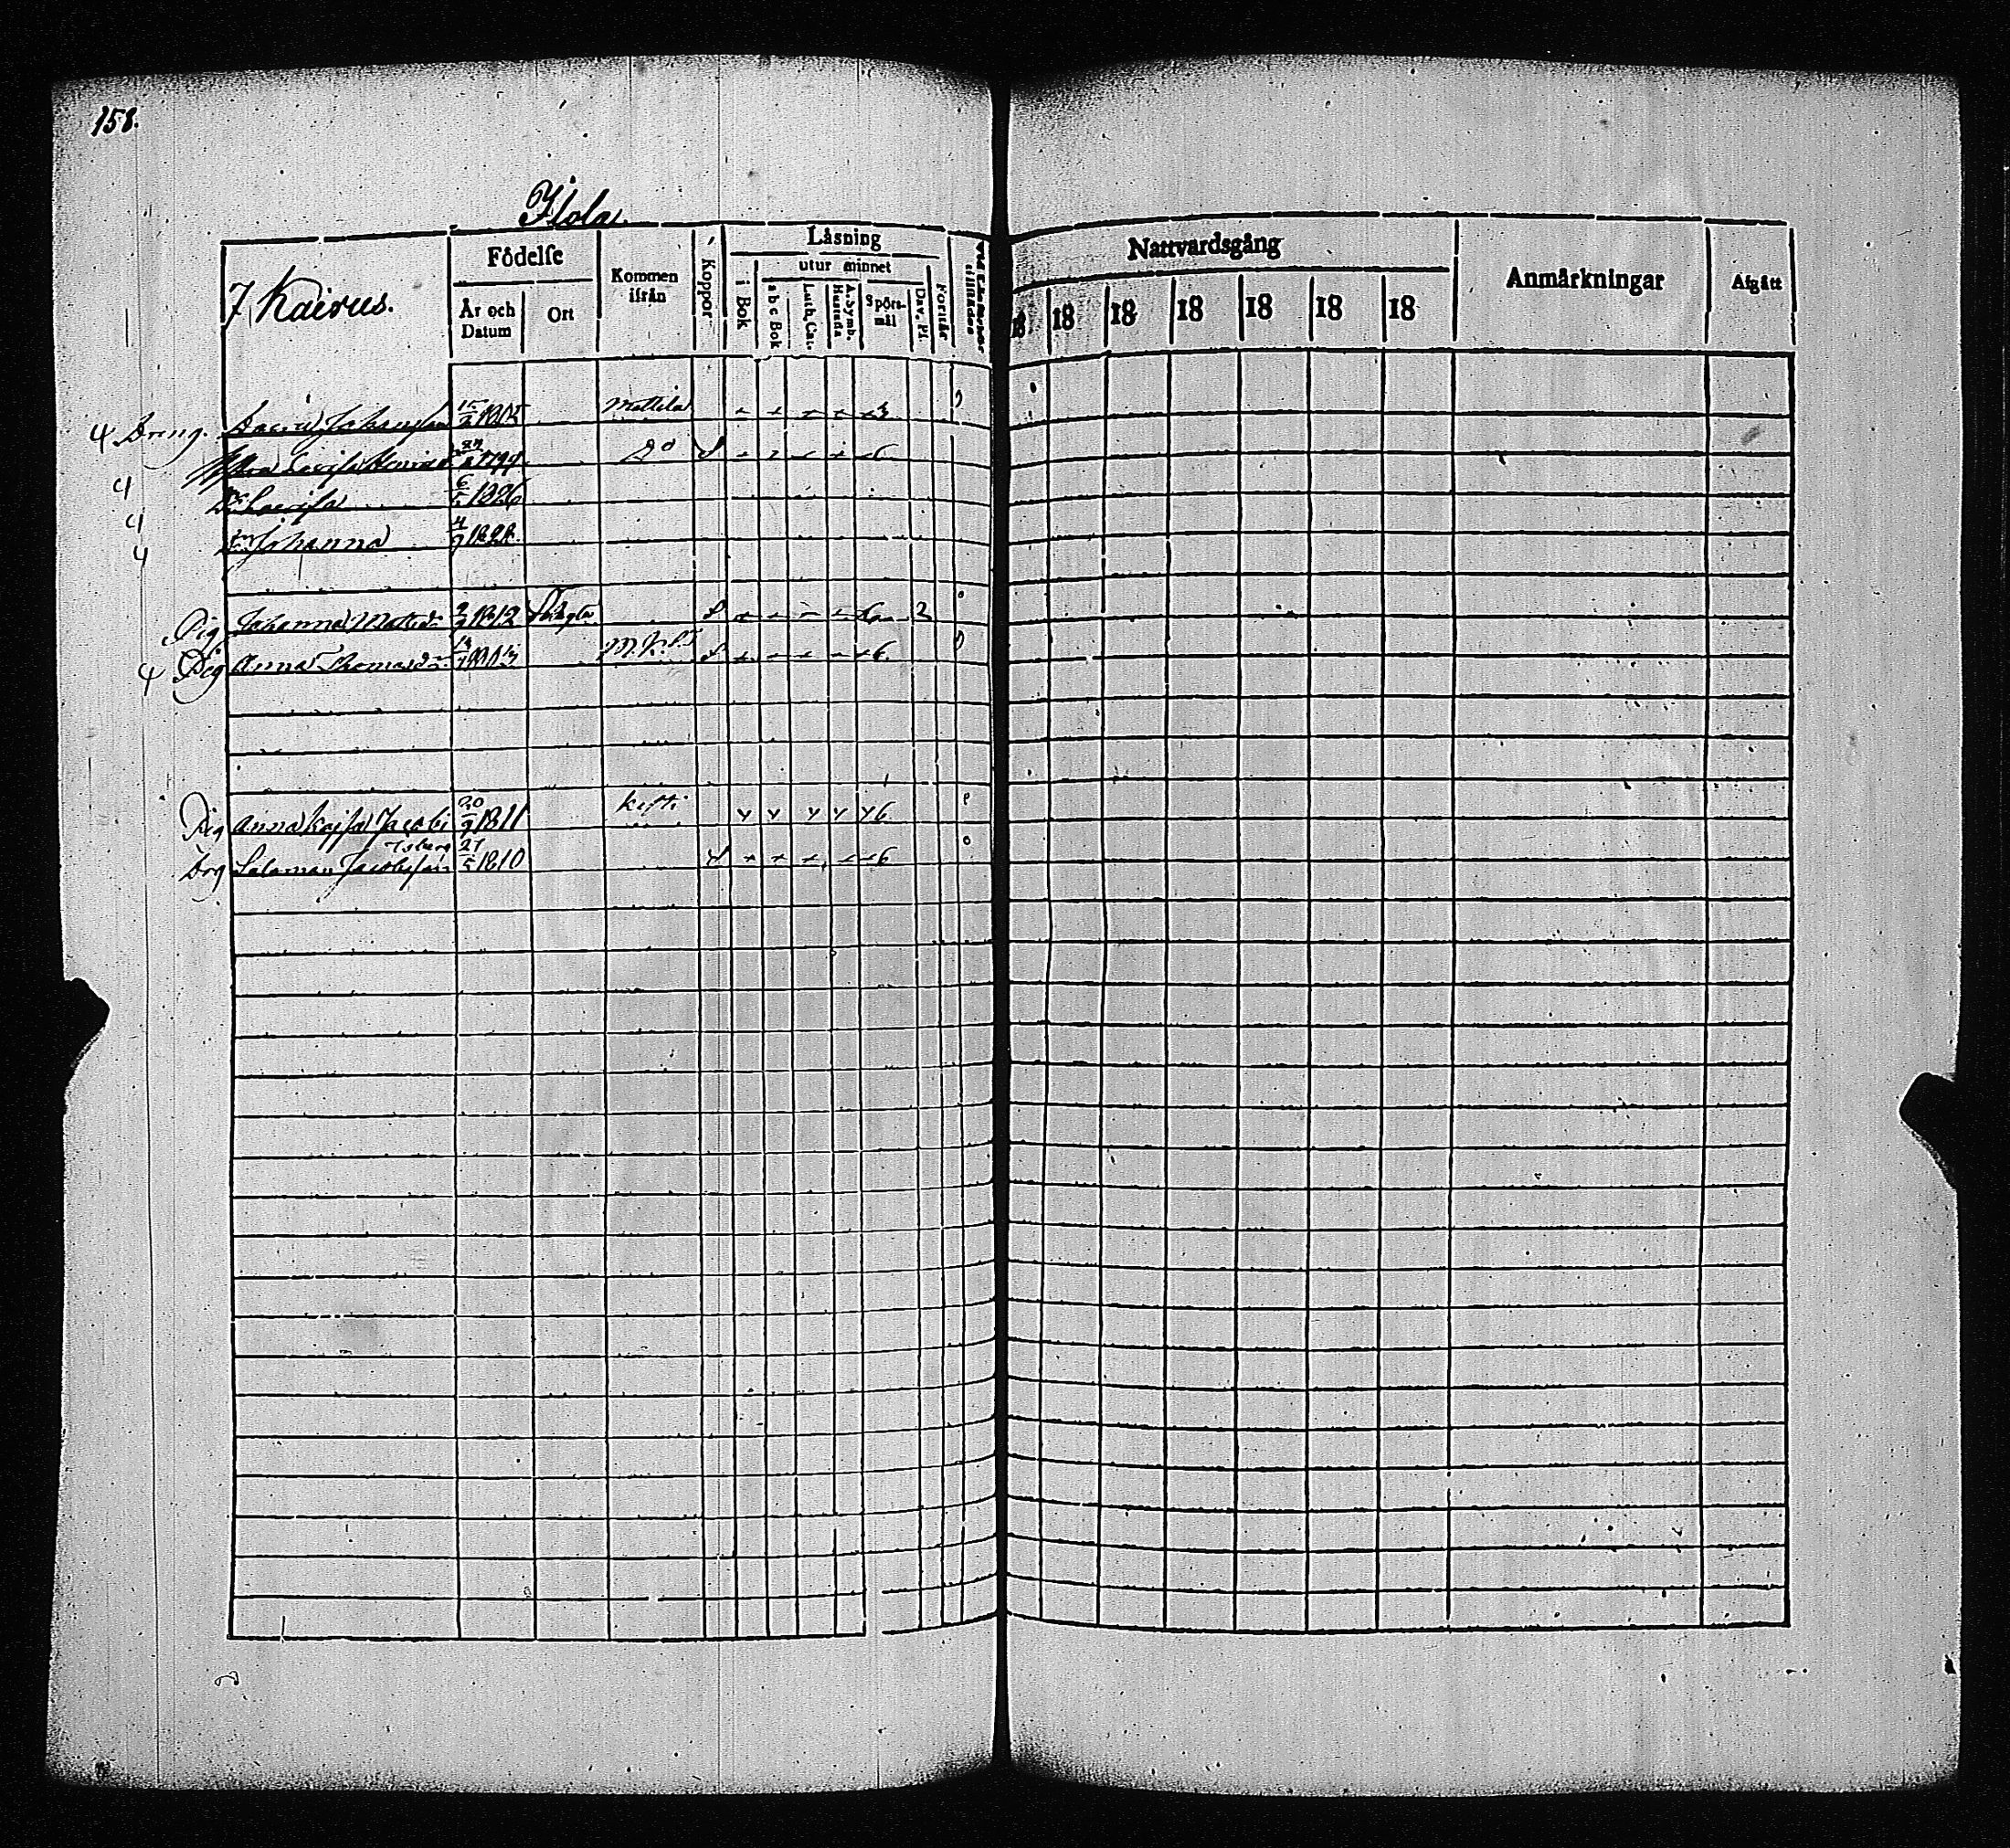 158.
Ilola
7 Kairus.
Födelse
År och Datum
Ort
Kommen ifrån
Koppor
Läsning
i Bok
utur minnet
a b c Bok
Luth. Cat.
A. Symb. Hustafla
Spörs-mål
Dav. Ps.
Förstår
Nattvardsgång
18 18 18 18 18 18 18
Anmärkningar
Afgått
4 Dreng. David Johansson 15/2 1805 Mattila
Lovisa 1794 Do 6
4 Dr Lovisa 6/5 1826
4 Dr Johanna 4/9 1828
Pig Johanna Matsdr 1812 6 2
4 Pig Anna Thomasdr 1813 6
Pig Anna Kajsa Jacobs 20/9 1811 6
Drg Saloman Jacobsson 27/5 1810 6